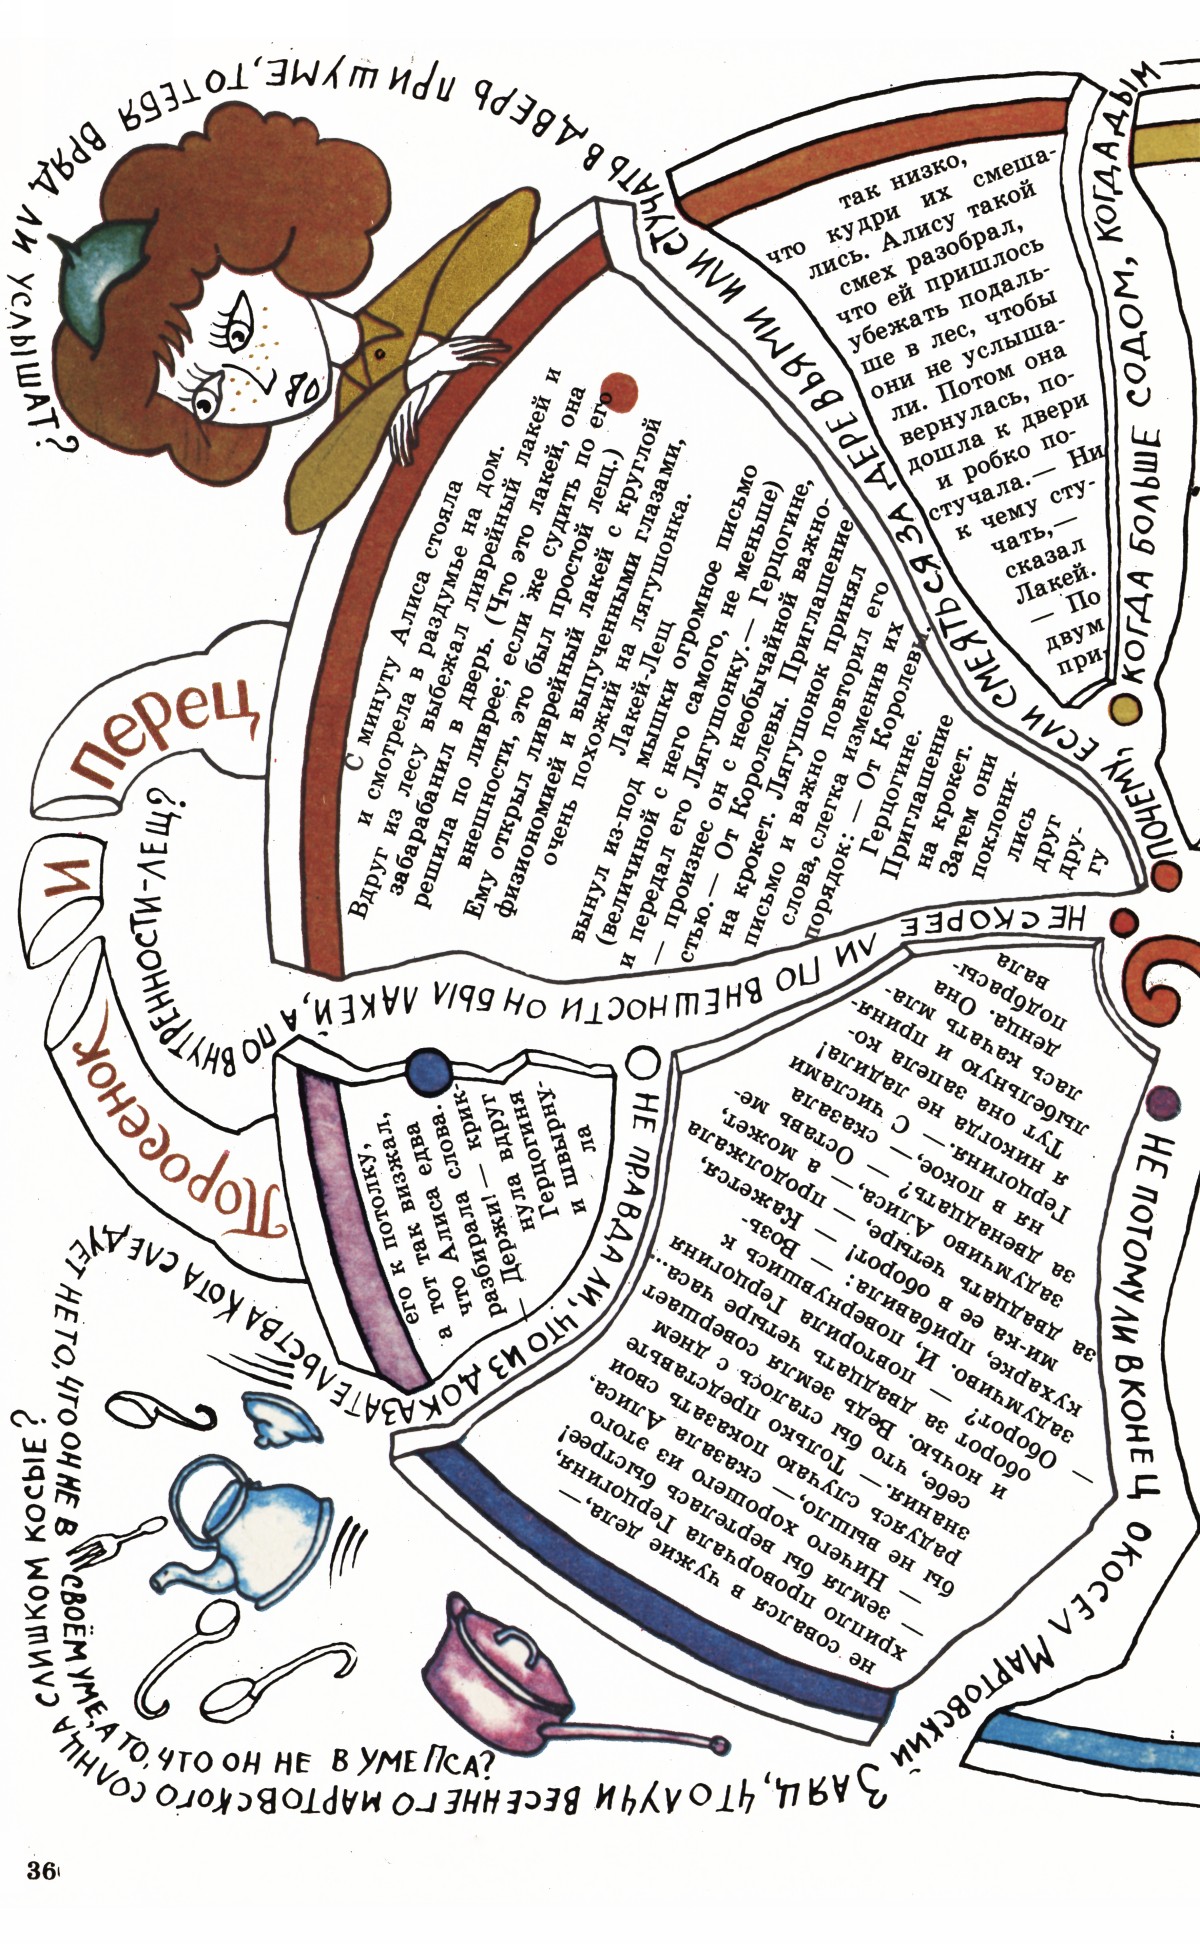 Перец
и
Поросенок
С минуту Алиса стояла
и смотрела в раздумье на дом.
Вдруг из лесу выбежал ливрейный лакей и
забарабанил в дверь. (Что это лакей, она
решила по ливрее; если же судить по его
внешности, это был простой лещ.)
Ему открыл ливрейный лакей с круглой
физиономией и выпученными глазами,
очень похожий на лягушонка.
Лакей-Лещ
вынул из-под мышки огромное письмо
(величиной с него самого, не меньше)
и передал его Лягушонку.— Герцогине,
— произнес он с необычайной важно-
стью.— От Королевы. Приглашение
на крокет. Лягушонок принял
письмо и важно повторил его
слова, слегка изменив их
порядок: — От Королевы.
Герцогине.
Приглашение
на крокет.
Затем они
поклони-
лись
друг
дру-
гу
так низко,
что кудри их смеша-
лись. Алису такой
смех разобрал,
что ей пришлось
убежать подаль-
ше в лес, чтобы
они не услыша-
ли. Потом она
вернулась, по-
дошла к двери
и робко по-
стучала.— Ни
к чему сту-
чать,—
сказал
Лакей.
— По
двум
при-
его к потолку,
а тот так визжал,
что Алиса едва
разбирала слова.
— Держи! — крик-
нула вдруг
Герцогиня
и швырну-
ла
не совался в чужие дела,—
хрипло проворчала Герцогиня,
— земля бы вертелась быстрее!
— Ничего хорошего из этого
бы не вышло,— сказала Алиса,
радуясь случаю показать свои
знания.— Только представьте
себе, что бы сталось с днем
и ночью. Ведь земля совершает
оборот за двадцать четыре часа...
— Оборот? — повторила Герцогиня
задумчиво. И, повернувшись к
кухарке, прибавила: — Возь-
ми-ка ее в оборот! Кажется,
за двадцать четыре, — продолжала
задумчиво Алиса,— а может,
за двенадцать? — Оставь ме-
ня в покое,— сказала
Герцогиня.— С числами
я никогда не ладила!
Тут она запела ко-
лыбельную и приня-
лась качать мла-
денца. Она
подбрасы-
вала
Не скорее ли по внешности он был лакей, а по внутренности-лещ?
Почему, если смеяться за деревьями или стучать в дверь при шуме, то тебя вряд ли услышат?
Когда больше содом, когда дым
Не правда ли, что из доказательства Кота следует не то, что он не в своём уме, а то, что он не в уме Пса?
Не потому ли вконец окосел Мартовский Заяц, что лучи весеннего мартовского солнца слишком косые?
36